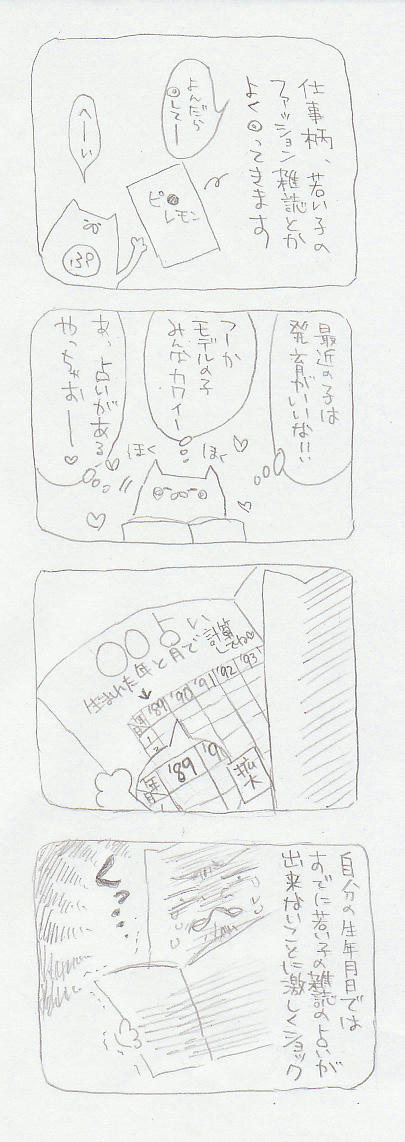 仕事柄、若い子の
ファッション雑誌とか
よく◎ってきます
よんだら
◎してー
へーい
ピ●
レモン
139
最近の子は
発育がいいな!!
つーか
モデルの子
みんなカワイー
あ、占いがある
やっちゃおー
ほく
ほく
〇〇占い
生まれた年と月で計算
してね
年
月
'89
'90
'91
'92
'93
1
2
年
月
'89
'9
1
拡大
自分の生年月日では
すでに若い子の雑誌の占いが
出来ないことに激しくショック
くっ…